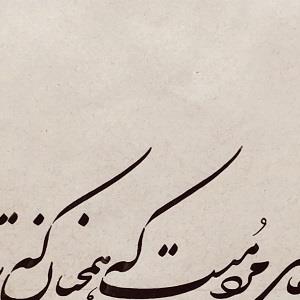 مردُمیست که همچنان که